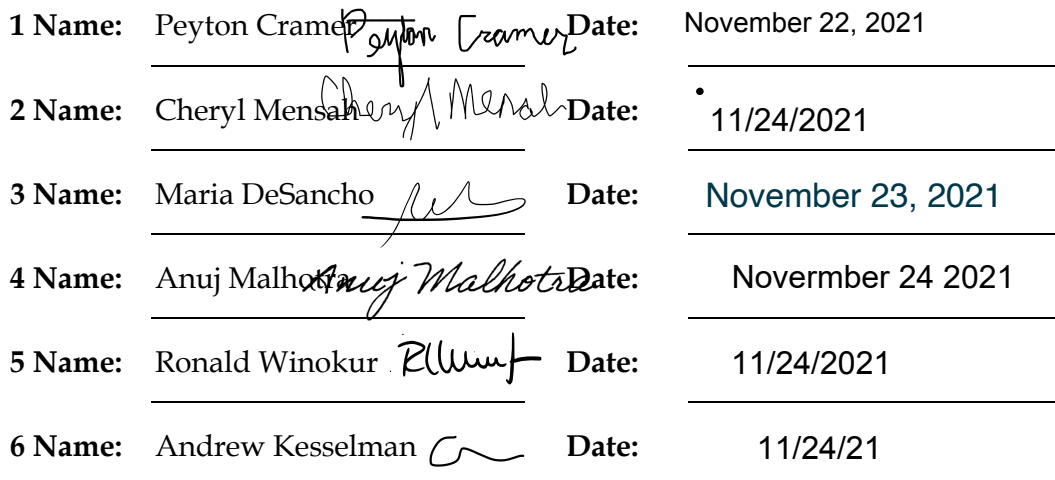 1 Name: Peyton Cramer Peyton Cramer Date: November 22, 2021
2 Name: Cheryl Mensah Cheryl Mensah Date: 11/24/2021
3 Name: Maria DeSancho Date: November 23, 2021
4 Name: Anuj Malhotra Anuj Malhotra Date: Novermber 24 2021
5 Name: Ronald Winokur Date: 11/24/2021
6 Name: Andrew Kesselman Date: 11/24/21